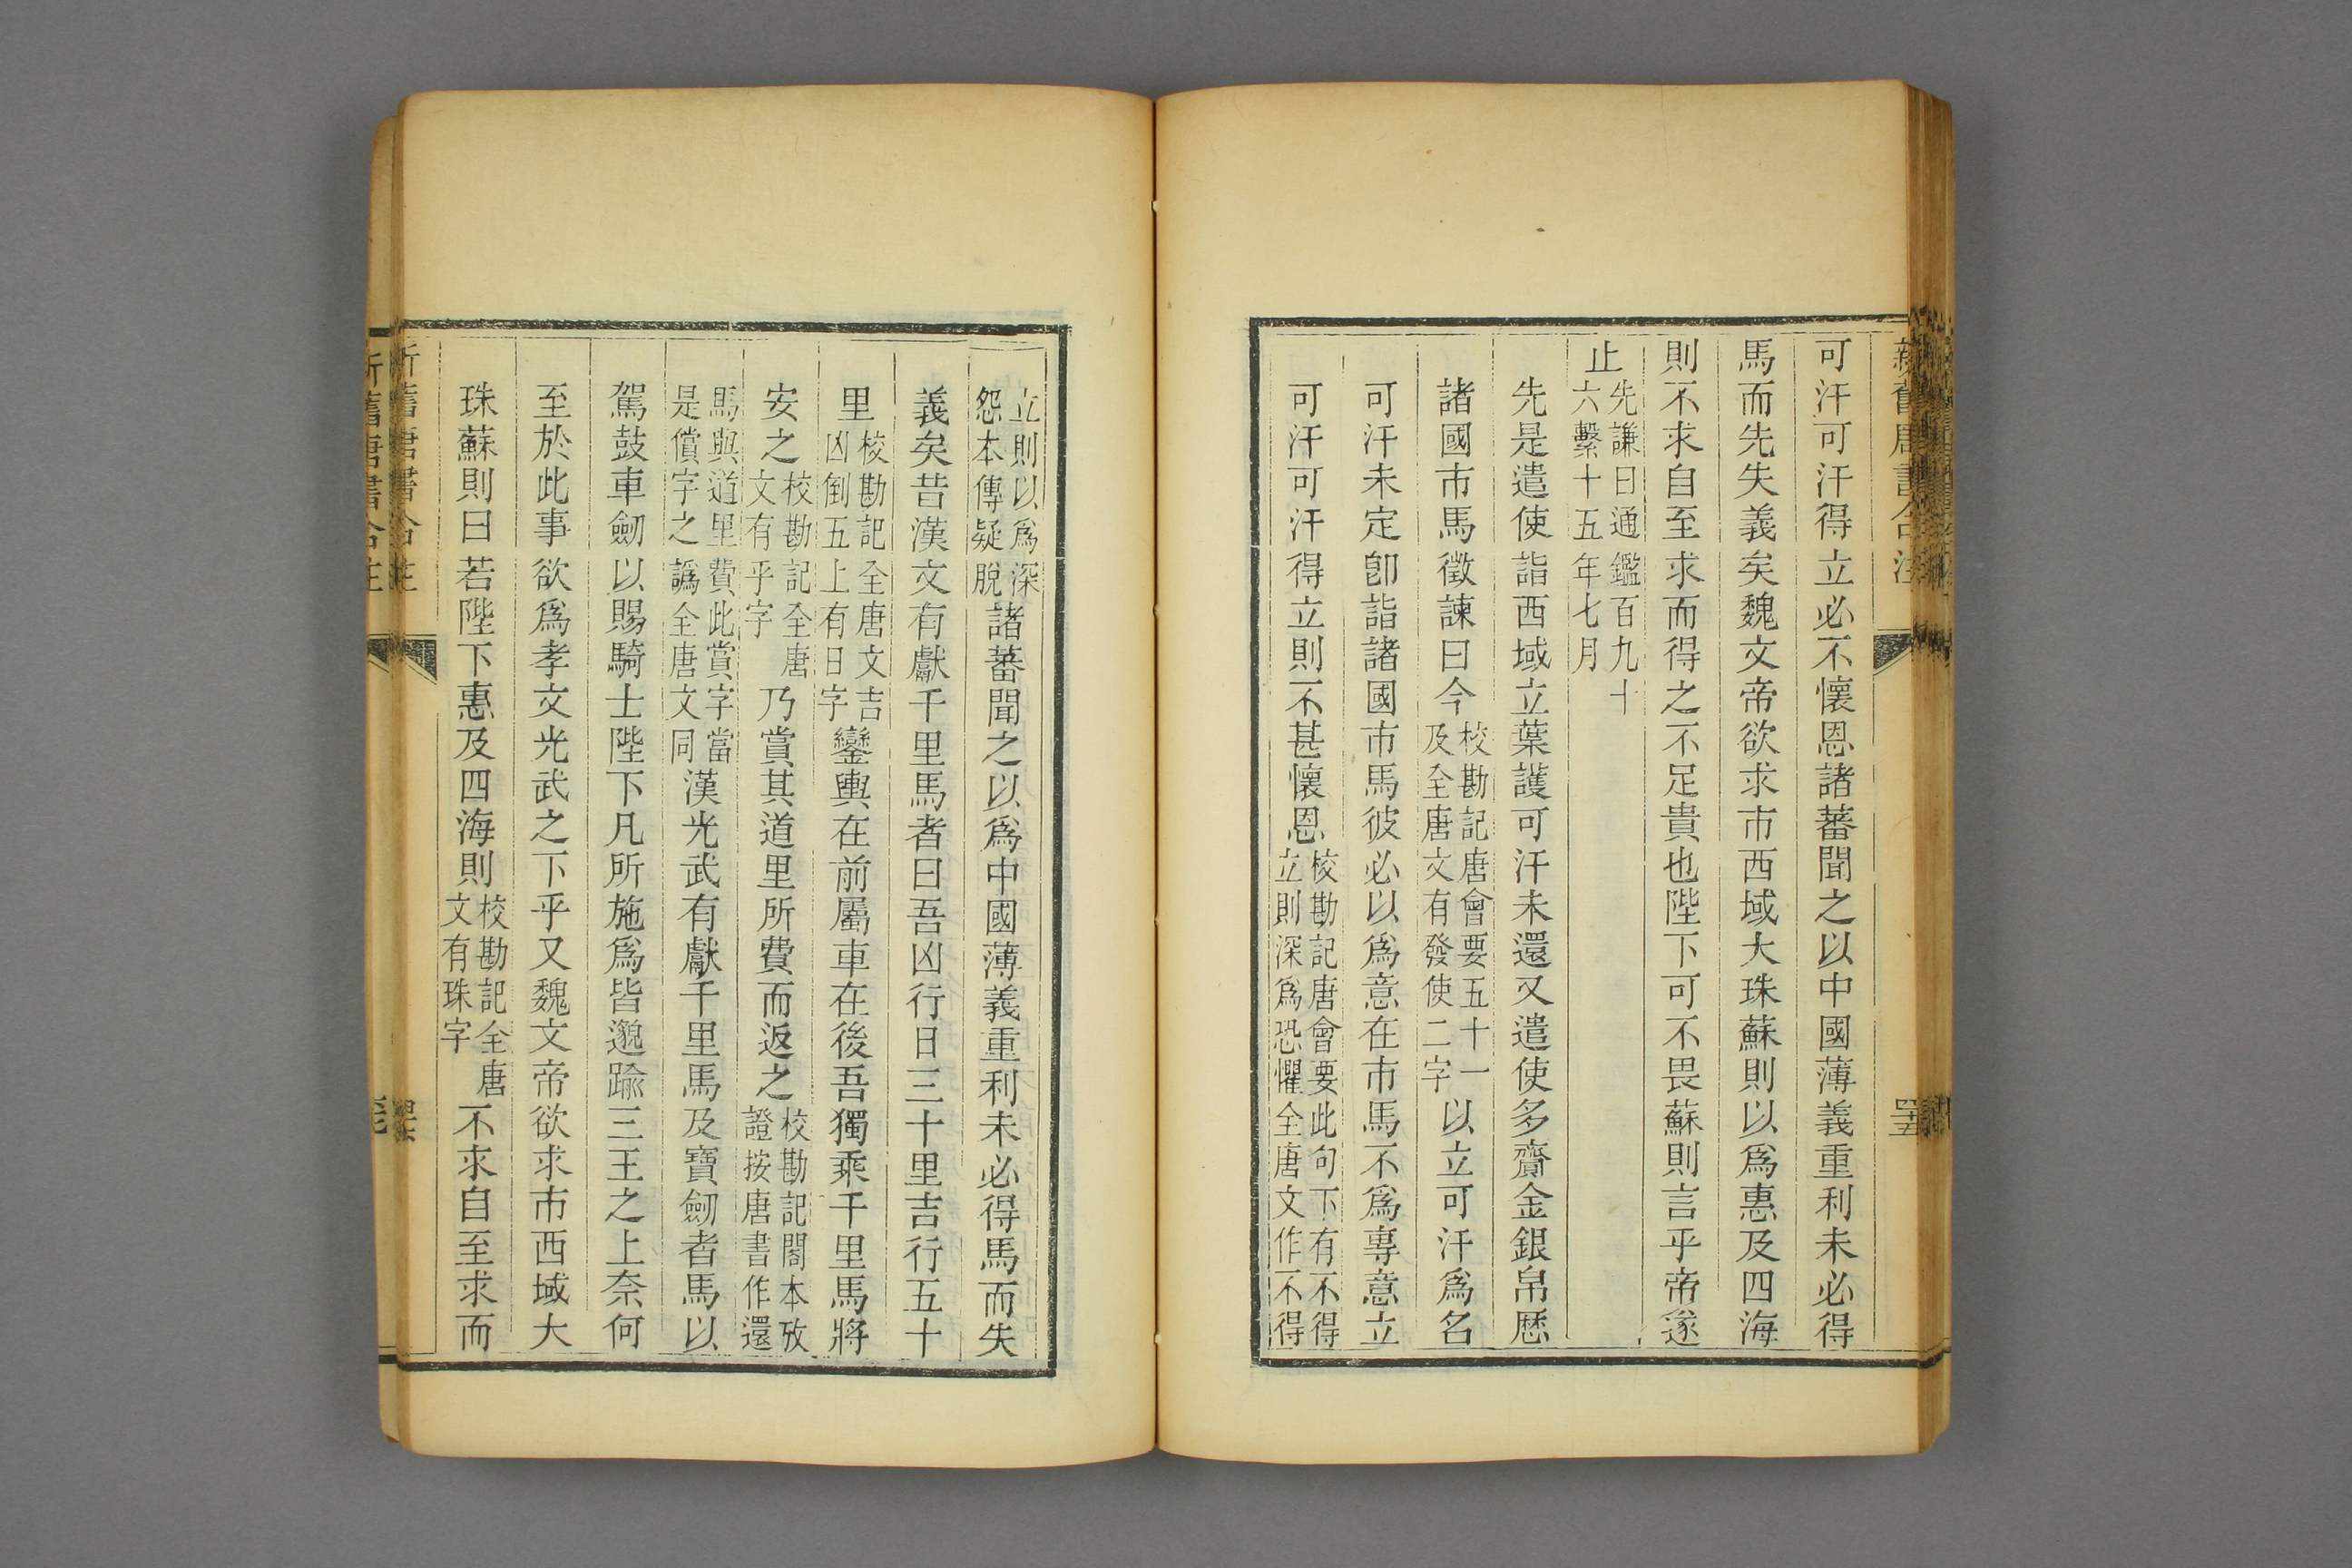 新舊唐書合注
可汗可汗得立必不懷恩諸蕃聞之以中國薄義重利未必得
馬而先失義矣魏文帝欲求市西域大珠蘇則以爲惠及四海
則不求自至求而得之不足貴也陛下可不畏蘇則言乎帝遂
止先謙曰通鑑百九十六繫十五年七月
先是遣使詣西域立葉護可汗未還又遣使多齎金銀帛歷
諸國市馬徵諫曰今校勘記唐會要五十一及全唐文有發使二字以立可汗爲名
可汗未定卽詣諸國市馬彼必以爲意在市馬不爲專意立
可汗可汗得立則不甚懷恩校勘記唐會要此句下有不得立則深爲恐懼全唐文作不得
立則以爲深怨本傳疑脫諸蕃聞之以爲中國薄義重利未必得馬而失
義矣昔漢文有獻千里馬者曰吾凶行日三十里吉行五十
里校勘記全唐文吉凶倒五上有日字鑾輿在前屬車在後吾獨乘千里馬將
安之校勘記全唐文有乎字乃賞其道里所費而返之校勘記閣本攷證按唐書作還
馬與道里費此賞字當是償字之譌全唐文同漢光武有獻千里馬及寶劒者馬以
駕鼓車劒以賜騎士陛下凡所施爲皆邈踰三王之上奈何
至於此事欲爲孝文光武之下乎又魏文帝欲求市西域大
珠蘇則曰若陛下惠及四海則校勘記全唐文有珠字不求自至求而
新舊唐書合注